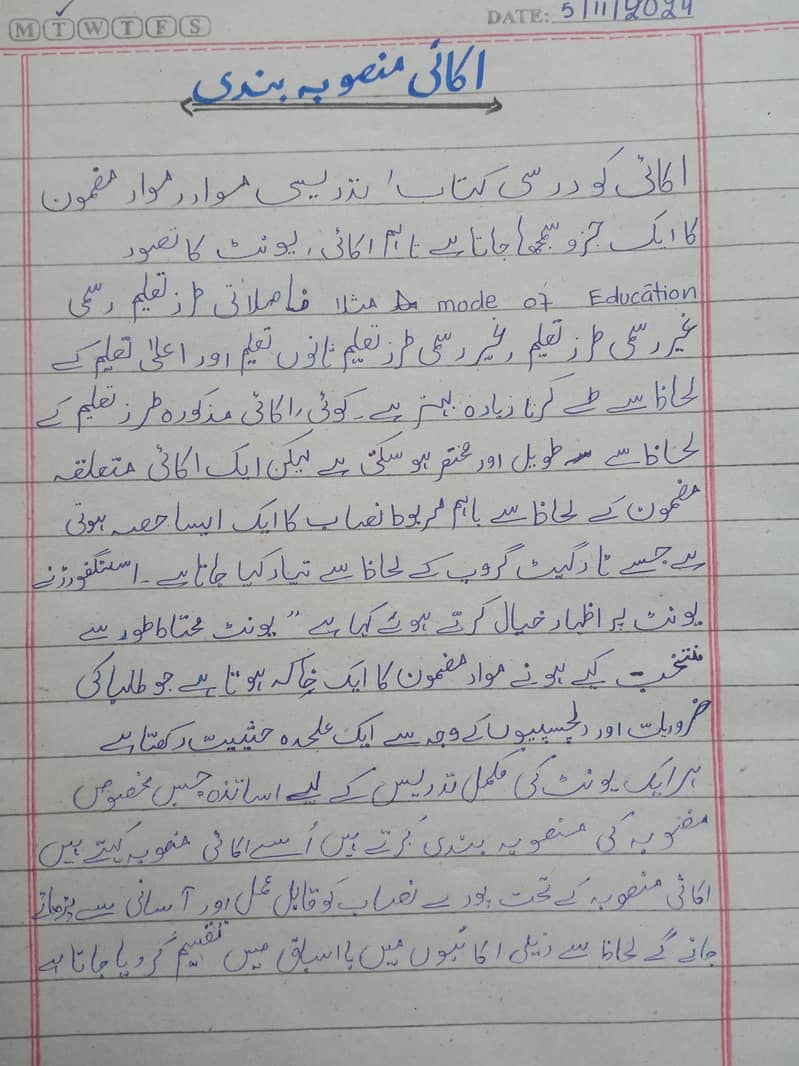 M T W T F S
DATE: 5/11/2024
اکائی منصوبہ بندی
اکائی کو درسی کتاب، تدریسی مواد رمواد مضمون
کا ایک جزو سمجھا جاتا ہے تاہم اکائی ریونٹ کا تصور
mode of Education مثلا فاصلاتی طرز تعلیم رسمی
غیر رسمی طرز تعلیم رغیر رسمی طرز تعلیم ثانوں تعلیم اور اعلیٰ تعلیم کے
لحاظ سے طے کرنا زیادہ بہتر ہے۔ کوئی راکائی مذکورہ طرز تعلیم کے
لحاظ سے طویل اور مختصر ہو سکتی ہے لیکن ایک اکائی متعلقہ
مضمون کے لحاظ سے باہم مربوط نصاب کا ایک ایسا حصہ ہوتی
ہے جسے ٹارگیٹ گروپ کے لحاظ سے تیار کیا جاتا ہے۔ اسٹنفورڈ نے
یونٹ پر اظہار خیال کرتے ہوئے کہا ہے " یونٹ محتاط طور سے
منتخب کیے ہونے مواد مضمون کا ایک خاکہ ہوتا ہے جو طلبا کی
ضروریات اور دلچسپیوں کے وجہ سے ایک علحدہ حیثیت رکھتا ہے
ہر ایک یونٹ کی مکمل تدریس کے لیے اساتذہ جس مخصوص
منصوبہ کی منصوبہ بندی کرتے ہیں اُسے اکائی منصوبہ کہتے ہیں
اکائی منصوبہ کے تحت پورے نصاب کو قابل عمل اور آسانی سے پڑھائے
جانے کے لحاظ سے ذیلی اکائیوں میں یا اسباق میں تقسیم کر دیا جاتا ہے